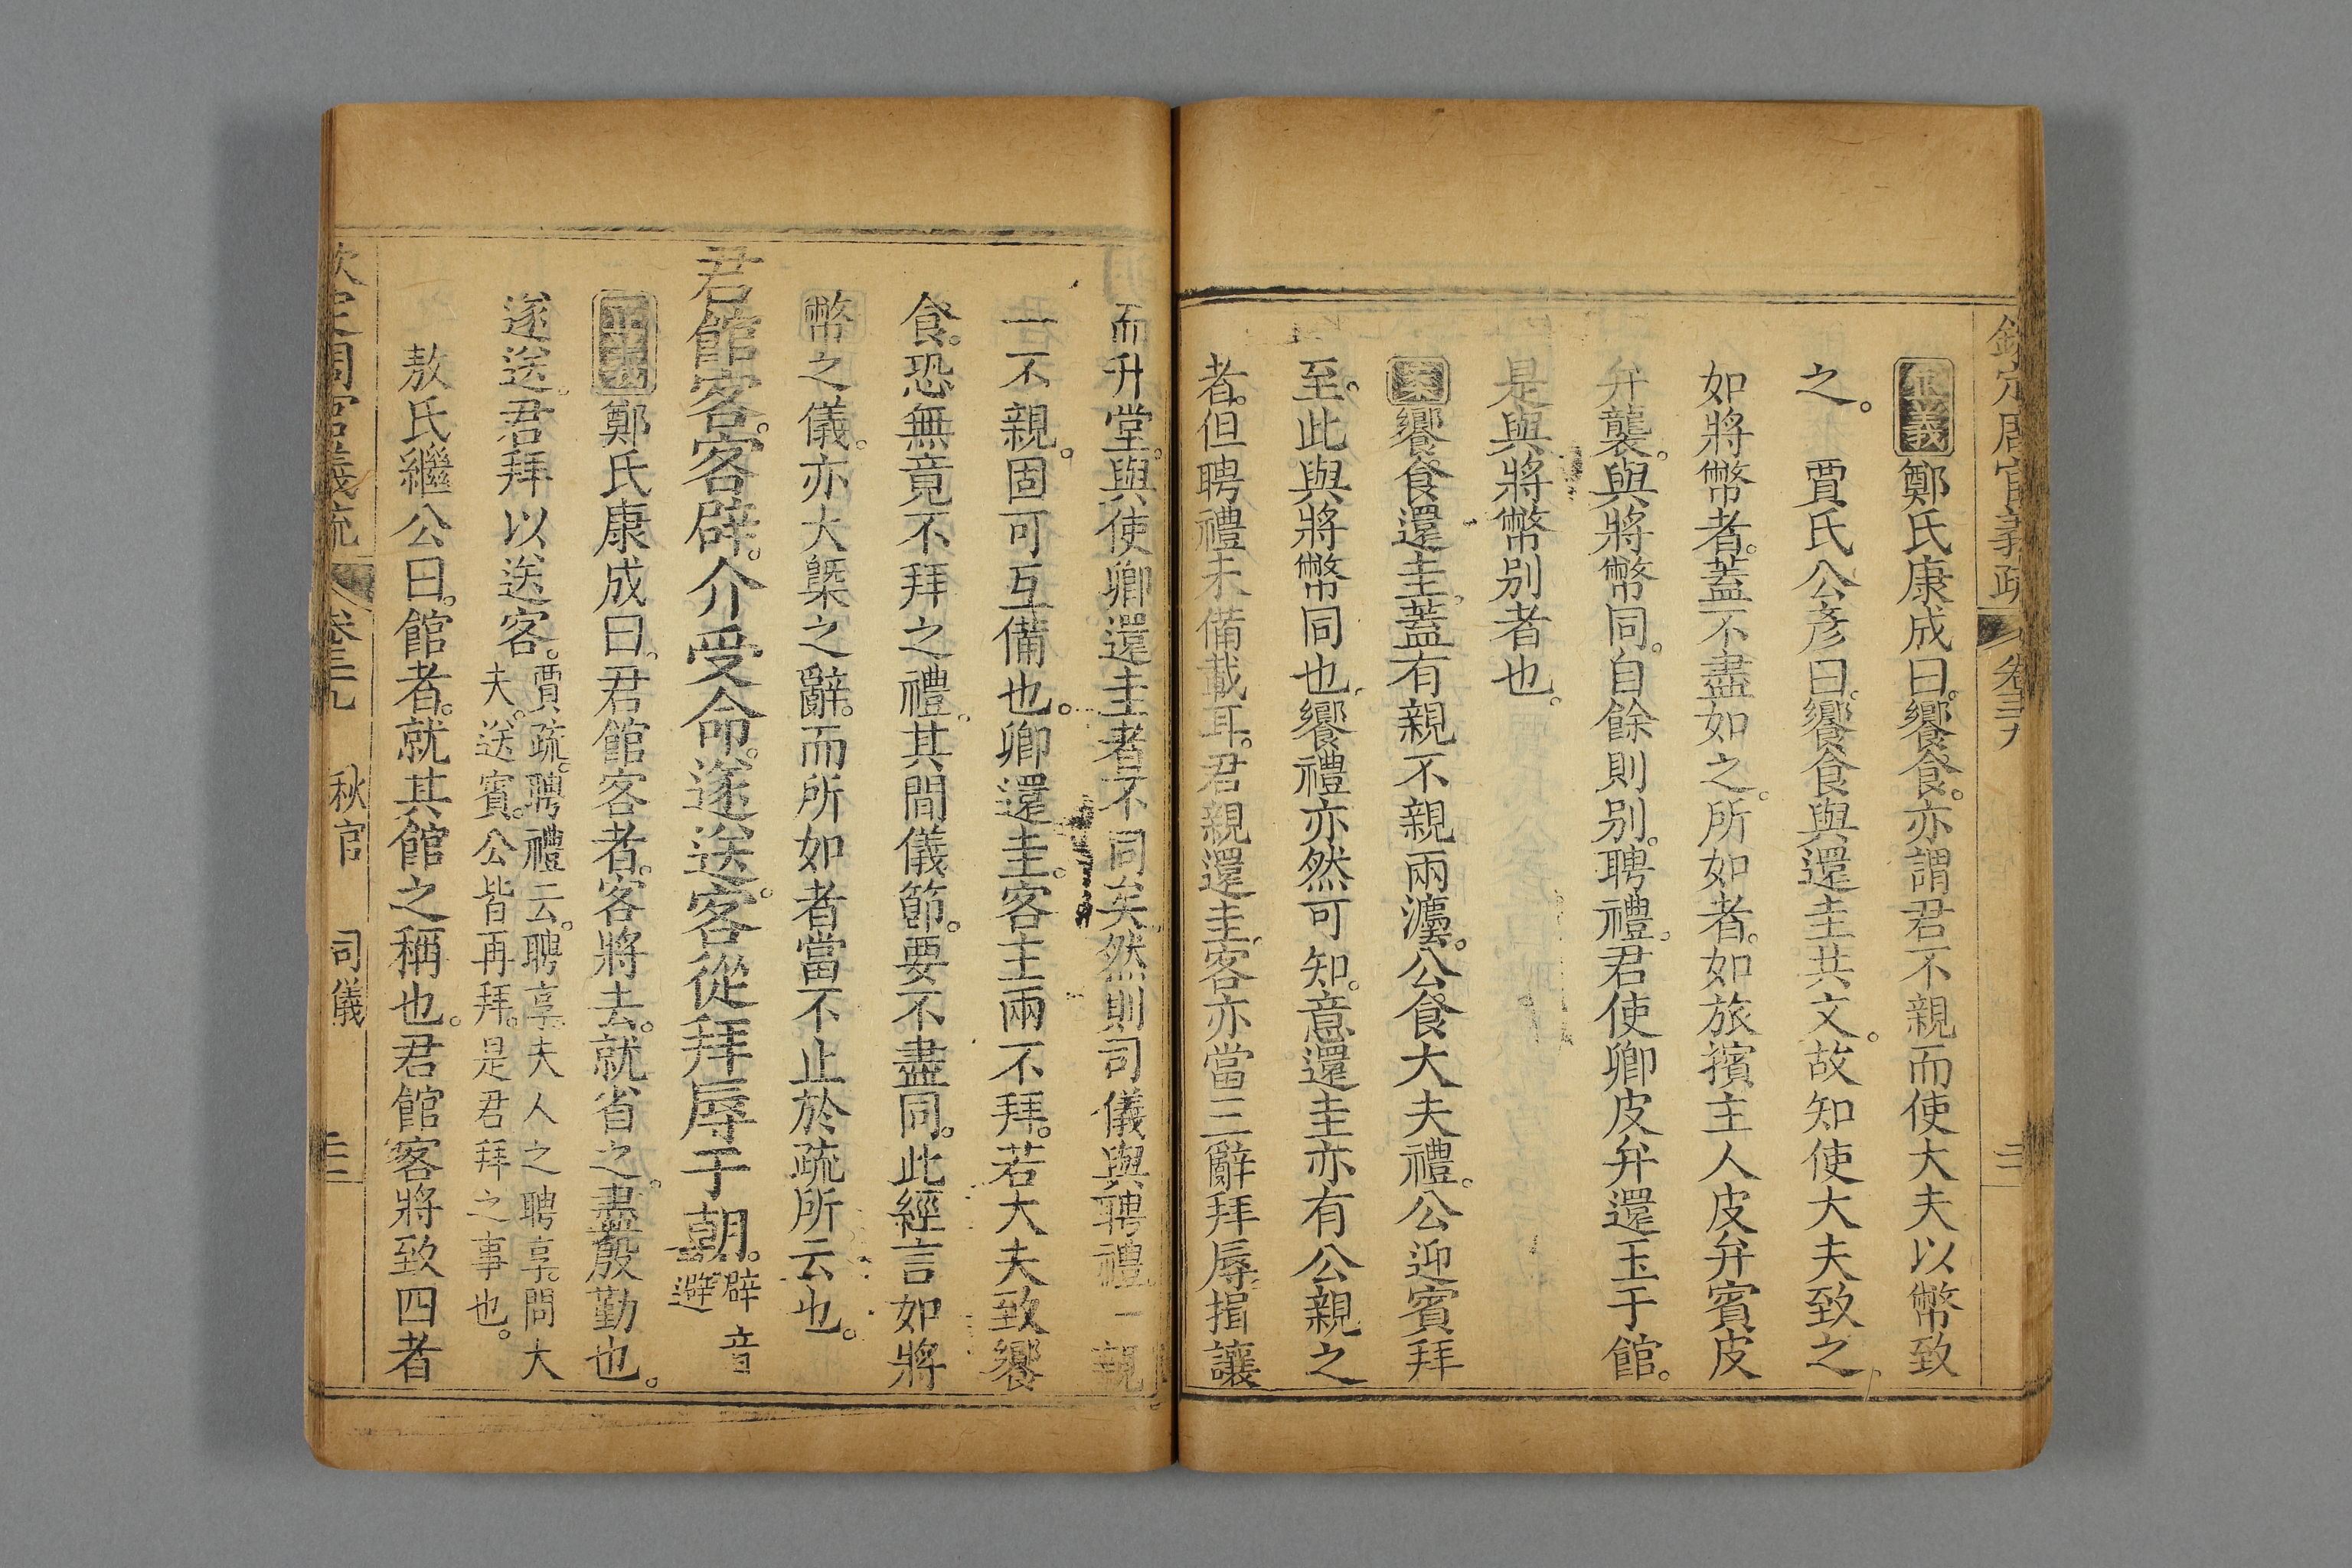 欽定周官義疏 卷三十九 三二
正義鄭氏康成曰。饗食。亦謂君不親而使大夫以幣致
之。 賈氏公彥曰。饗食與還圭共文。故知使大夫致之
如將幣者。蓋不盡如之。所如者。如旅擯主人皮弁賓皮
弁襲。與將幣同。自餘則別。聘禮。君使卿皮弁還玉于館。
是與將幣別者也。
案饗食還圭。蓋有親不親兩灋。公食大夫禮。公迎賓拜
至。此與將幣同也。饗禮亦然可知。意還圭亦有公親之
者。但聘禮未備載耳。君親還圭。客亦當三辭拜辱。揖讓
而升堂。與使卿還圭者不同矣。然則司儀與聘禮一親
一不親。固可互備也。卿還圭。客主兩不拜。若大夫致饗
食。恐無竟不拜之禮。其間儀節。要不盡同。此經言如將
幣之儀。亦大槩之辭。而所如者當不止於疏所云也。
君館客。客辟。介受命。遂送。客從拜辱于朝。辟音避
正義鄭氏康成曰。君館客者。客將去。就省之。盡殷勤也。
遂送。君拜以送客。賈疏。聘禮云。聘享。夫人之聘享。問大
夫。送賓。公皆再拜。是君拜之事也。
敖氏繼公曰。館者。就其館之稱也。君館客將致四者
欽定周官義疏 卷三十九 秋官 司儀 三二